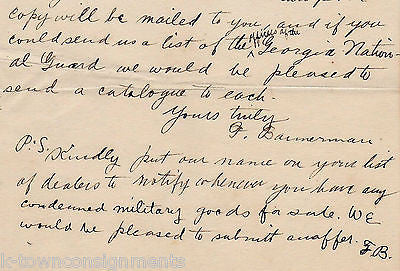 copy will be mailed to you, and if you
could send us a list of the officers of the Georgia Nation-
al Guard we would be pleased to
send a catalogue to each.
Yours truly
F. Bannerman
P.S. Kindly put our name on your list
of dealers to notify whenever you have any
condemned military goods for sale. We
would be pleased to submit an offer. F.B.
k-townconsignments